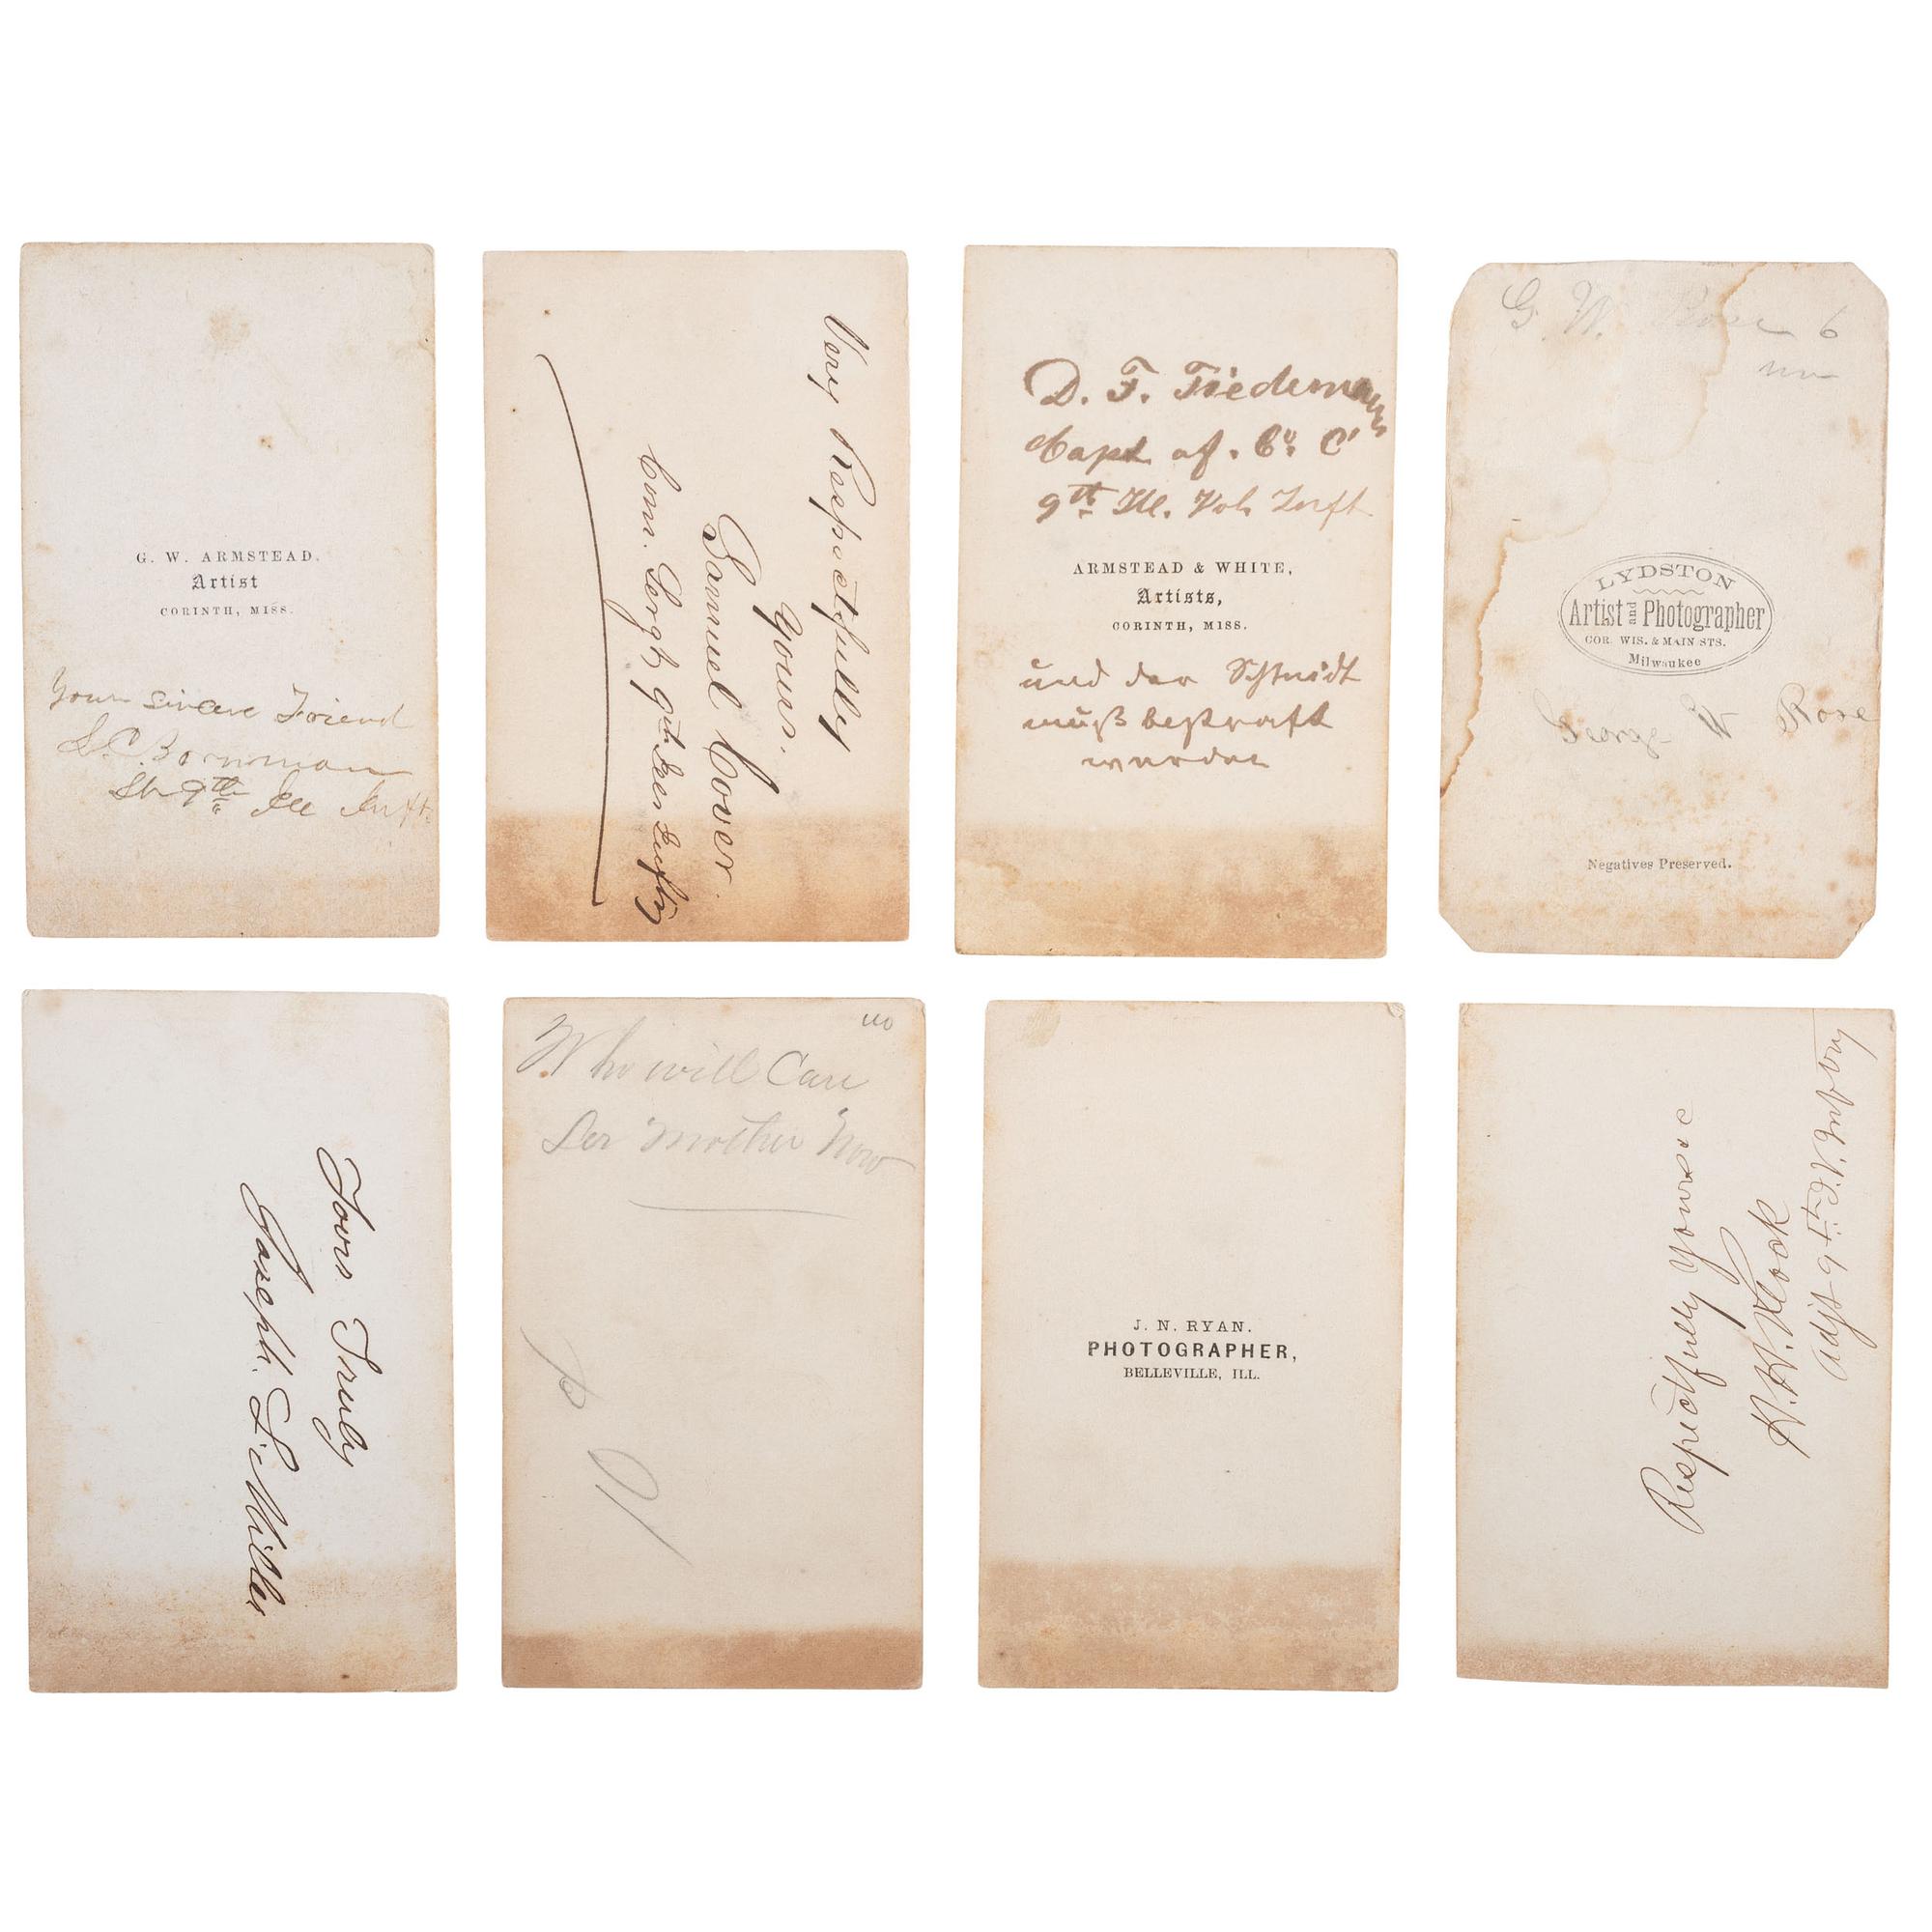 G. W. ARMSTEAD.
Artist
CORINTH, MISS.
Your sincere Friend
S. C. Bornman
9th Ill Inft.
Very Respectfully
Yours.
Samuel Cover.
Com. Sergt, 9th Ills Infty
D. F. Tiedemann
Capt of. Co. C
9th Ill. Vol. Inft
ARMSTEAD & WHITE,
Artists,
CORINTH, MISS.
und der Schmidt
muß bestraft
werden
G W. Rose 6
LYDSTON
Artist and Photographer
COR. WIS. & MAIN STS.
Milwaukee
George W Rose
Negatives Preserved.
Yours Truly
Joseph. L. Miller
Who will Care
for Mother Now
J. N. RYAN.
PHOTOGRAPHER,
BELLEVILLE, ILL.
Respectfully Yours
H. H. Klock
Adjt 9th I. V. Inftry